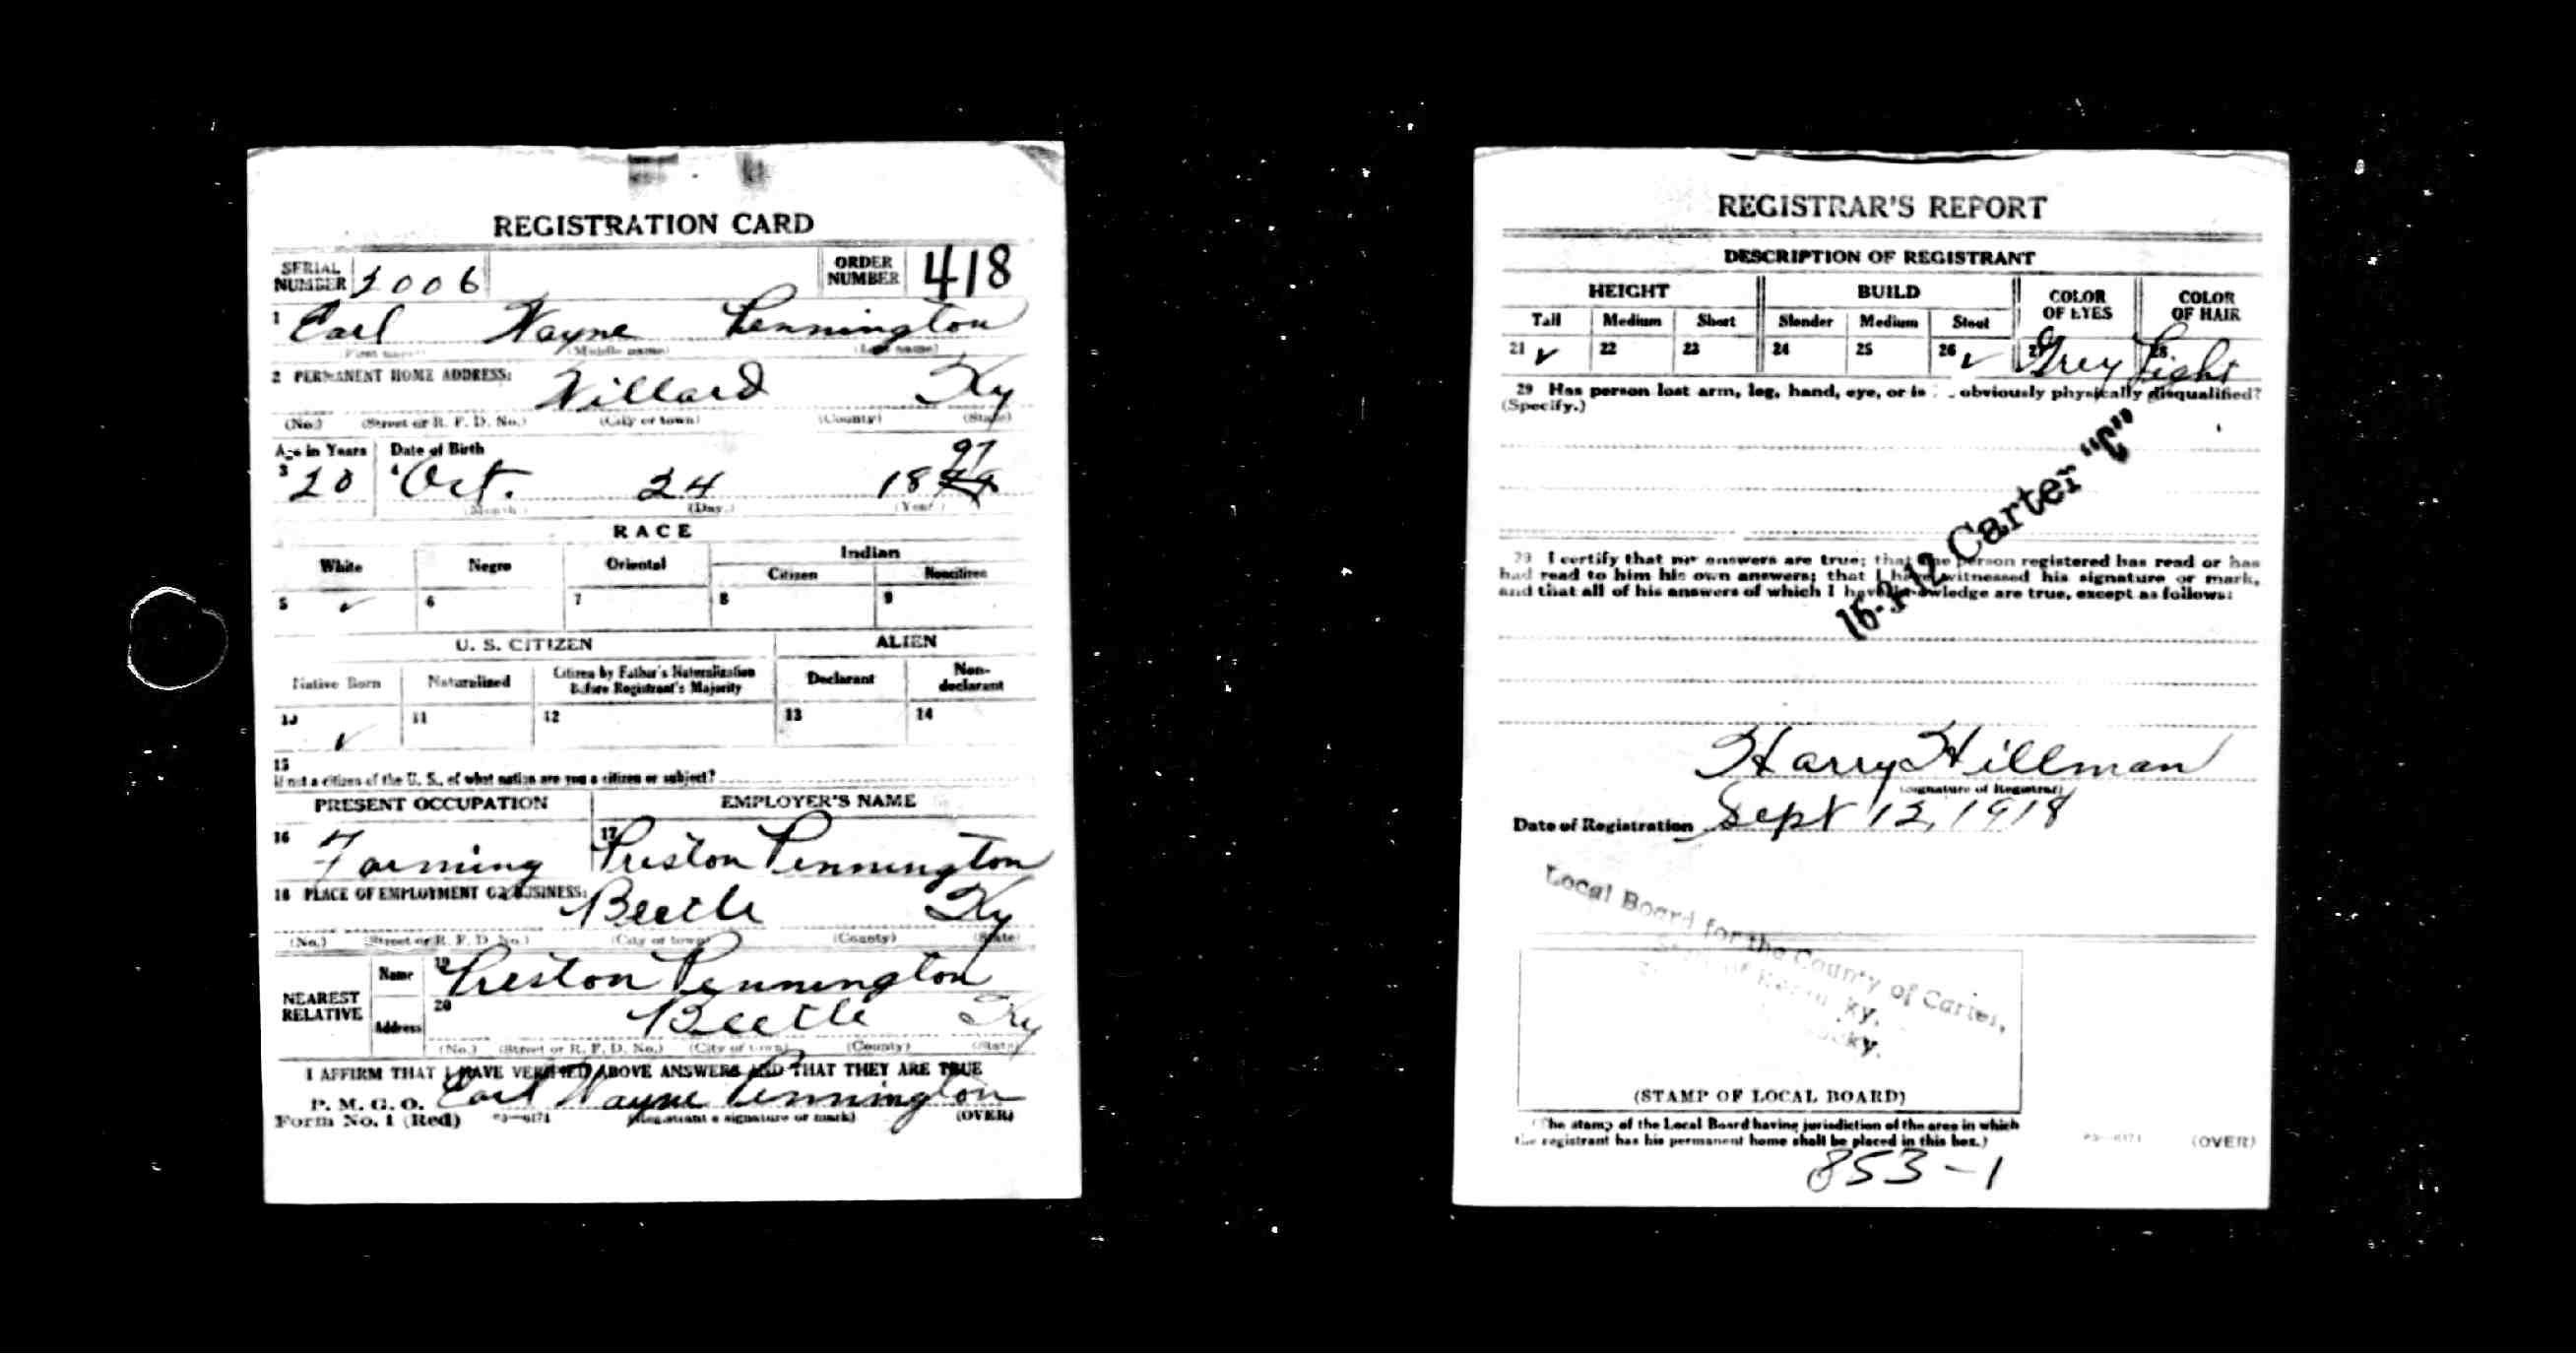 REGISTRATION CARD
SERIAL NUMBER 1006 ORDER NUMBER 418
1 Earl Wayne Pennington
(First name) (Middle name) (Last name)
2 PERMANENT HOME ADDRESS: Willard Ky
(No.) (Street or R. F. D. No.) (City or town) (County) (State)
Age in Years Date of Birth 97
3 20 4 Oct. 24 18
(Month.) (Day.) (Year.)
RACE
White Negro Oriental Indian
Citizen Noncitizen
5 ✓ 6 7 8 9
U. S. CITIZEN ALIEN
Native Born Naturalized Citizen by Father's Naturalization Before Registrant's Majority Declarant Non-declarant
10 ✓ 11 12 13 14
15
If not a citizen of the U. S., of what nation are you a citizen or subject?
PRESENT OCCUPATION EMPLOYER'S NAME
16 Farming 17 Preston Pennington
18 PLACE OF EMPLOYMENT OR BUSINESS: Beetle Ky
(No.) (Street or R. F. D. No.) (City or town) (County) (State)
NEAREST RELATIVE Name 19 Preston Pennington
Address 20 Beetle Ky
(No.) (Street or R. F. D. No.) (City or town) (County) (State)
I AFFIRM THAT I HAVE VERIFIED ABOVE ANSWERS AND THAT THEY ARE TRUE
P. M. G. O. Earl Wayne Pennington
Form No. 1 (Red) 03-6171 (Registrant's signature or mark) (OVER)
REGISTRAR'S REPORT
DESCRIPTION OF REGISTRANT
HEIGHT BUILD COLOR OF EYES COLOR OF HAIR
Tall Medium Short Slender Medium Stout
21 ✓ 22 23 24 25 26 ✓ 27 Grey 28 Light
29 Has person lost arm, leg, hand, eye, or is obviously physically disqualified?
(Specify.)
16-1-12 Carter "C"
I certify that my answers are true; that the person registered has read or has
had read to him his own answers; that I have witnessed his signature or mark,
and that all of his answers of which I have knowledge are true, except as follows:
Harry Hillman
(Signature of Registrar)
Date of Registration Sept 12, 1918
Local Board for the County of Carter,
State of Kentucky,
(STAMP OF LOCAL BOARD)
(The stamp of the Local Board having jurisdiction of the area in which
the registrant has his permanent home shall be placed in this box.)
03-6171 (OVER)
853-1